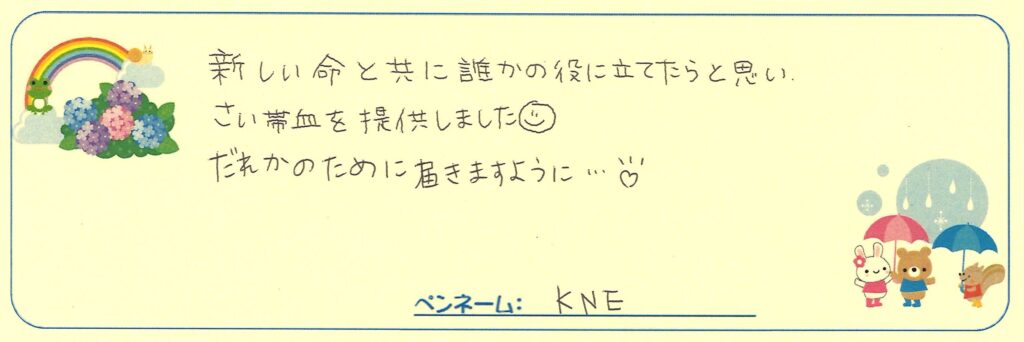 新しい命と共に誰かの役に立てたらと思い、
さい帯血を提供しました
だれかのために届きますように…
ペンネーム: KNE